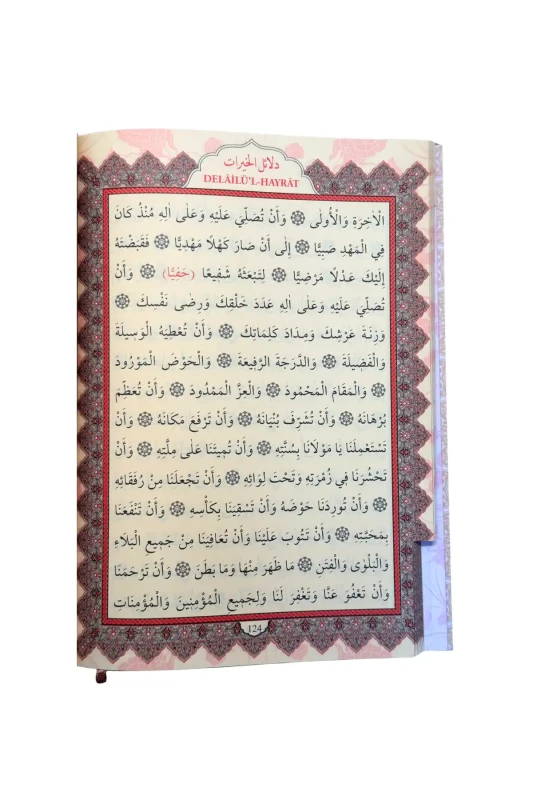 دلائل الخيرات
DELÂİLÜ'L-HAYRÂT
الْاٰخِرَةِ وَالْاُولٰى ۞ وَاَنْ تُصَلِّيَ عَلَيْهِ وَعَلٰى اٰلِهِ مُنْذُ كَانَ
فِي الْمَهْدِ صَبِيًّا ۞ اِلٰى اَنْ صَارَ كَهْلًا مَهْدِيًّا ۞ فَقَبَضْتَهُ
اِلَيْكَ عَدْلًا مَرْضِيًّا ۞ لِتَبْعَثَهُ شَفِيعًا (حَفِيًّا) ۞ وَاَنْ
تُصَلِّيَ عَلَيْهِ وَعَلٰى اٰلِهِ عَدَدَ خَلْقِكَ وَرِضٰى نَفْسِكَ ۞
وَزِنَةَ عَرْشِكَ وَمِدَادَ كَلِمَاتِكَ ۞ وَاَنْ تُعْطِيَهُ الْوَسِيلَةَ
وَالْفَضِيلَةَ ۞ وَالدَّرَجَةَ الرَّفِيعَةَ ۞ وَالْحَوْضَ الْمَوْرُودَ
۞ وَالْمَقَامَ الْمَحْمُودَ ۞ وَالْعِزَّ الْمَمْدُودَ ۞ وَاَنْ تُعَظِّمَ
بُرْهَانَهُ ۞ وَاَنْ تُشَرِّفَ بُنْيَانَهُ ۞ وَاَنْ تَرْفَعَ مَكَانَهُ ۞ وَاَنْ
تَسْتَعْمِلَنَا يَا مَوْلَانَا بِسُنَّتِهِ ۞ وَاَنْ تُمِيتَنَا عَلٰى مِلَّتِهِ ۞ وَاَنْ
تَحْشُرَنَا فِي زُمْرَتِهِ وَتَحْتَ لِوَائِهِ ۞ وَاَنْ تَجْعَلَنَا مِنْ رُفَقَائِهِ
۞ وَاَنْ تُورِدَنَا حَوْضَهُ وَاَنْ تَسْقِيَنَا بِكَأْسِهِ ۞ وَاَنْ تَنْفَعَنَا
بِمَحَبَّتِهِ ۞ وَاَنْ تَتُوبَ عَلَيْنَا وَاَنْ تُعَافِيَنَا مِنْ جَمِيعِ الْبَلَاءِ
وَالْبَلْوٰى وَالْفِتَنِ ۞ مَا ظَهَرَ مِنْهَا وَمَا بَطَنَ ۞ وَاَنْ تَرْحَمَنَا
وَاَنْ تَعْفُوَ عَنَّا وَتَغْفِرَ لَنَا وَلِجَمِيعِ الْمُؤْمِنِينَ وَالْمُؤْمِنَاتِ
124